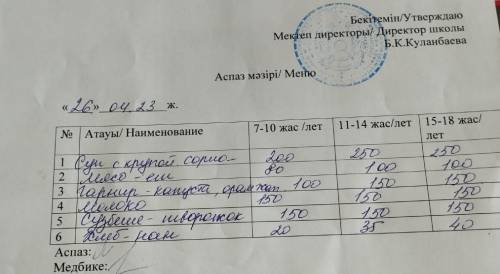 Бекітемін/Утверждаю
Мектеп директоры/ Директор школы
Б.К.Куланбаева
Аспаз мәзірі/ Меню
«26» 04.23 ж.
№ Атауы/ Наименование 7-10 жас /лет 11-14 жас/лет 15-18 жас/ лет
1 Суп с крупой 200 250 250
2 Мясо - ет 80 100 100
3 Гарнир - капуста, 100 150 150
4 Молоко 150 150 150
5 Сүзбеше - творожок 150 150 150
6 Хлеб - нан 20 35 40
Аспаз:
Медбике: